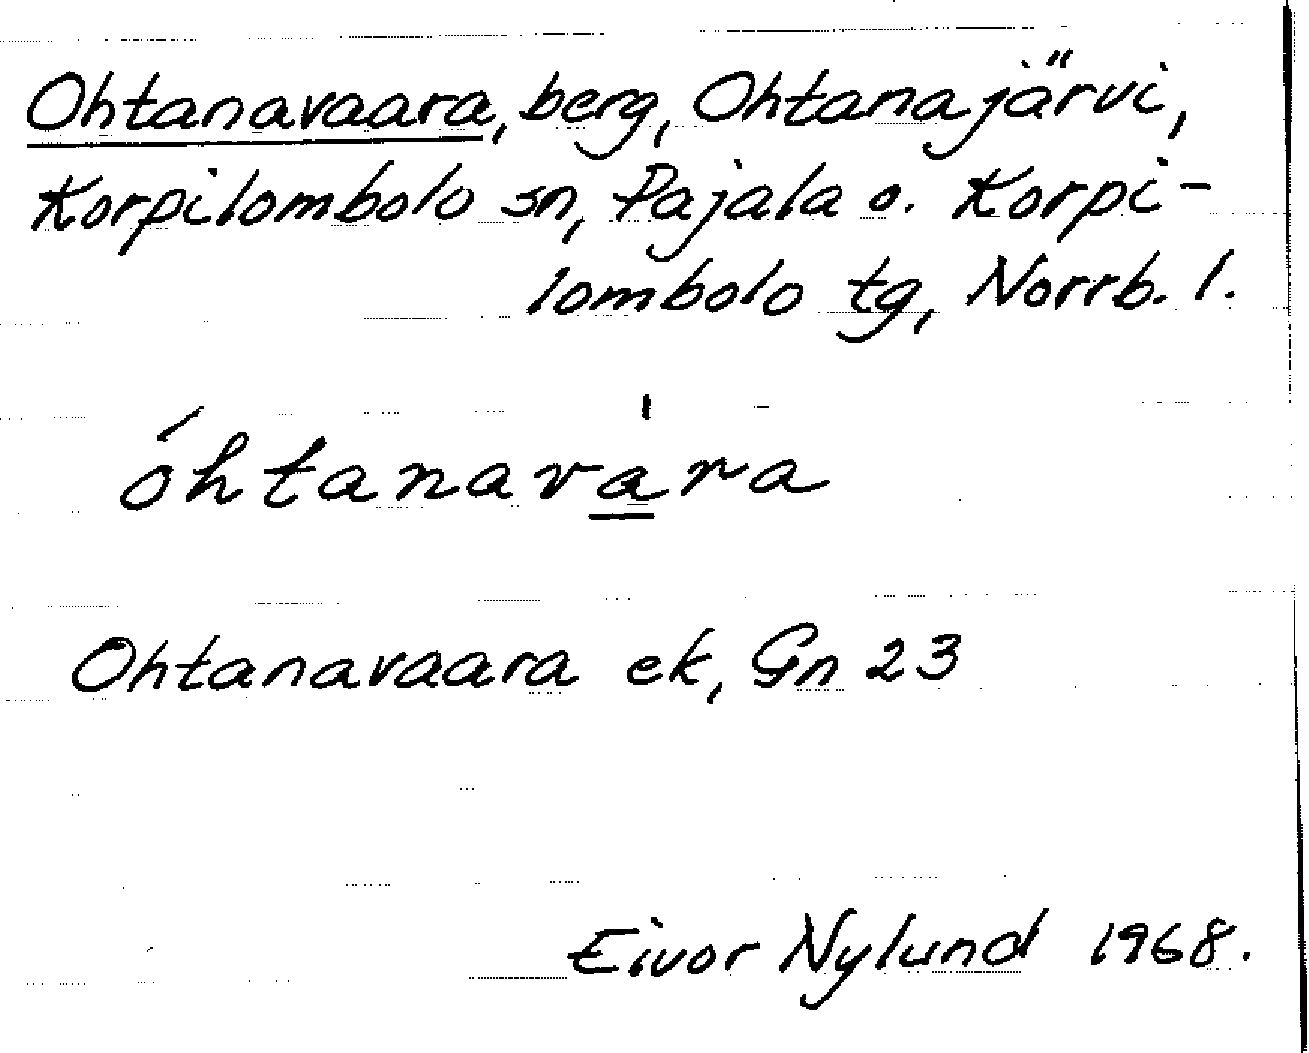 Ohtanavaara, berg, Ohtanajärvi,
Korpilombolo sn, Pajala o. Korpi-
lombolo tg, Norrb. l.
óhtanava̱ra
Ohtanavaara ek, Gn 23
Eivor Nylund 1968.